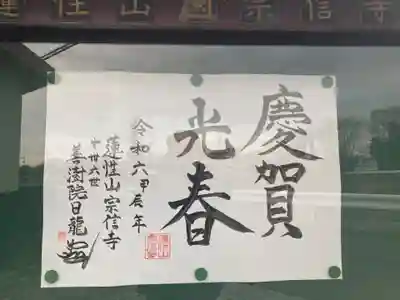 蓮性山 宗信寺
慶賀
光春
令和六甲辰年
蓮性山 宗信寺
廿卅六世
善澍院日龍